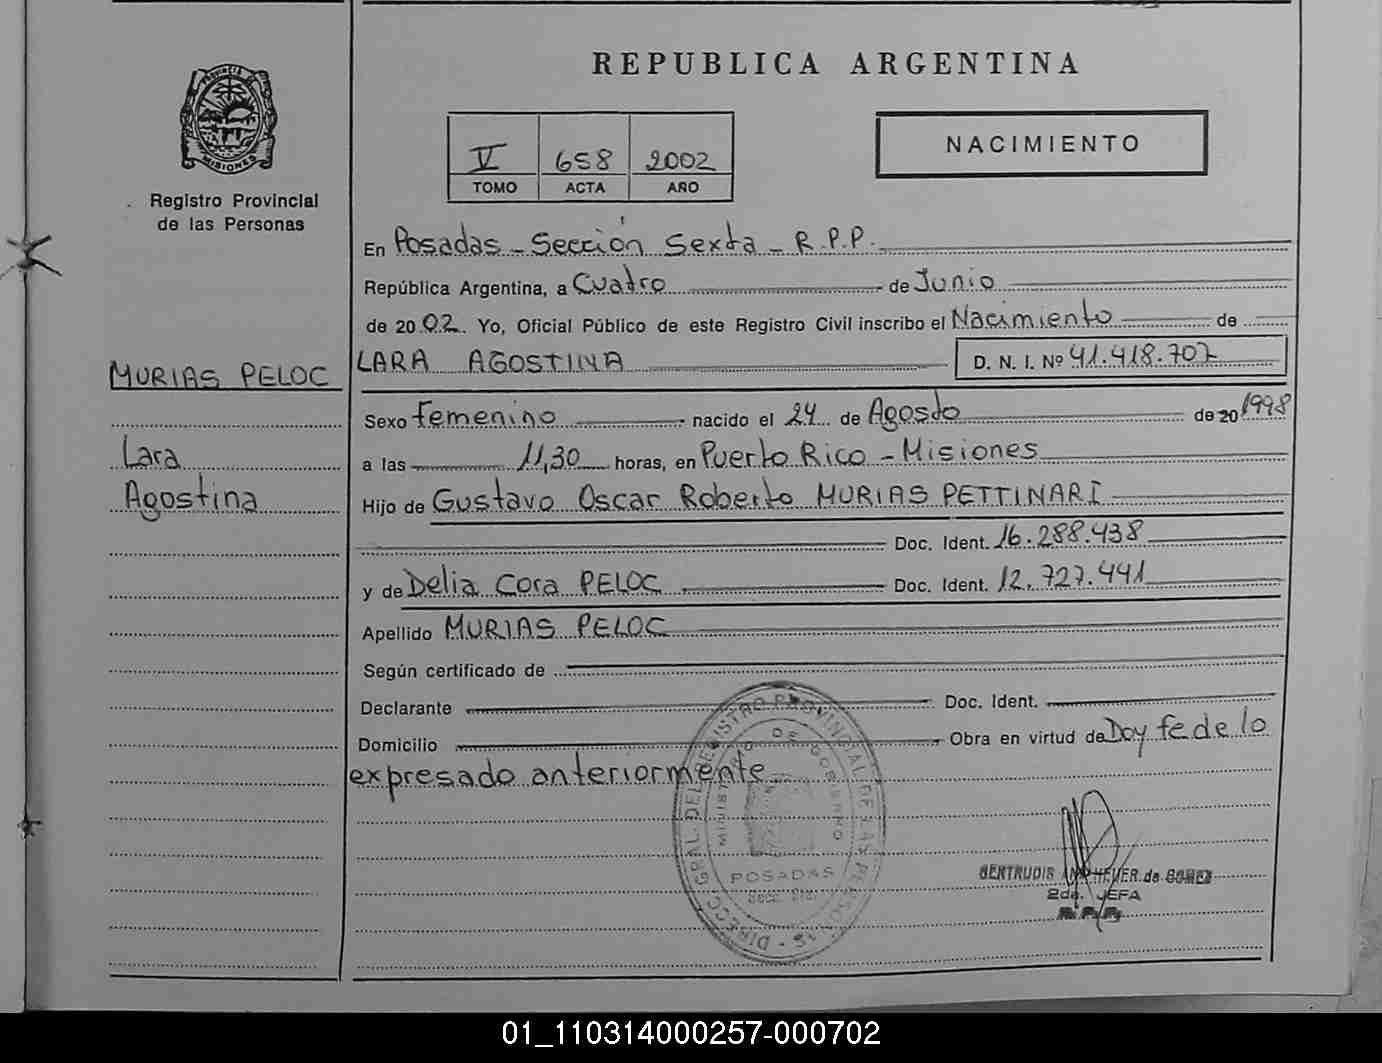 REPUBLICA ARGENTINA
PROVINCIA DE
MISIONES
Registro Provincial
de las Personas
V 658 2002
TOMO ACTA AÑO
NACIMIENTO
En Posadas - Sección Sexta - R.P.P.
República Argentina, a Cuatro de Junio
de 2002. Yo, Oficial Público de este Registro Civil inscribo el Nacimiento de
LARA AGOSTINA D. N. I. Nº 41.418.707
MURIAS PELOC
Lara
Agostina
Sexo Femenino nacido el 24 de Agosto de 20 1998
a las 11,30 horas, en Puerto Rico - Misiones
Hijo de Gustavo Oscar Roberto MURIAS PETTINARI
Doc. Ident. 16.288.438
y de Delia Cora PELOC Doc. Ident. 12.727.441
Apellido MURIAS PELOC
Según certificado de
Declarante Doc. Ident.
Domicilio Obra en virtud de Doy fe de lo
expresado anteriormente
DIRECC. GRAL. DEL REGISTRO PROVINCIAL DE LAS PERSONAS
MINISTERIO DE GOBIERNO
POSADAS
GERTRUDIS de GOMEZ
2da. JEFA
01_110314000257-000702